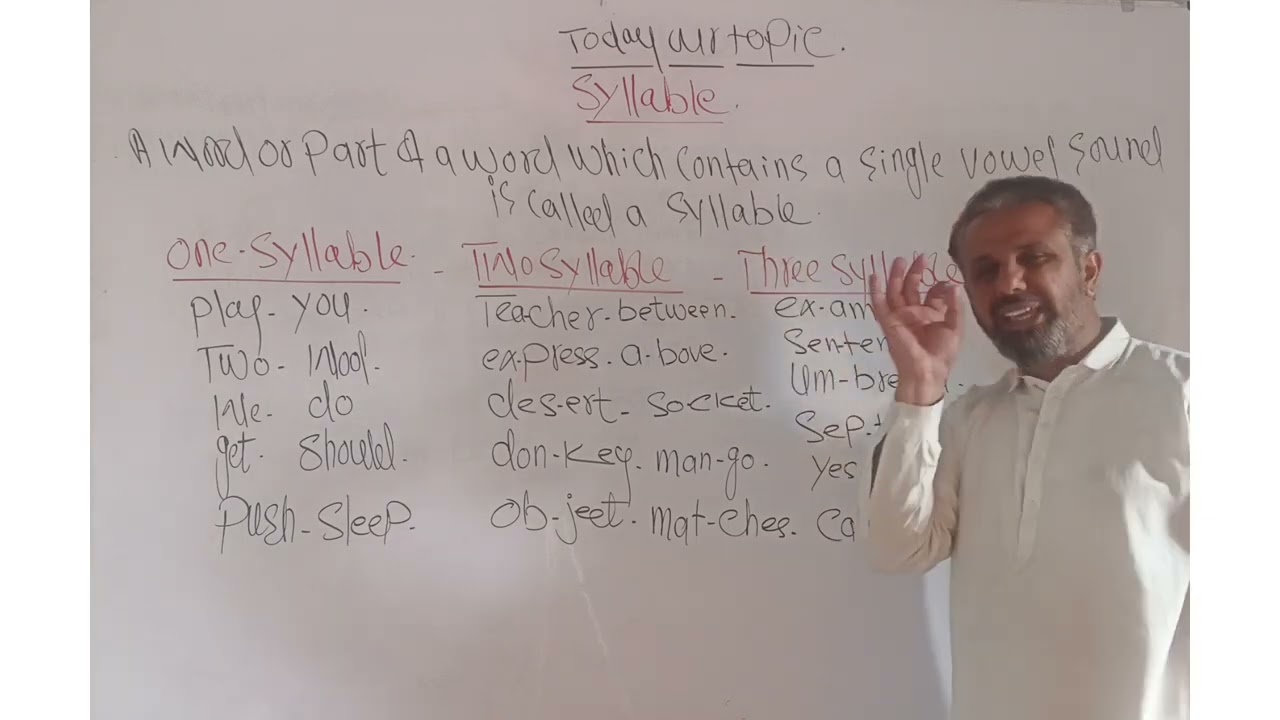 Today our topic.
Syllable.
A word or Part of a word which contains a single vowel sound
is called a syllable.
One-syllable. - Two syllable - Three syllable
Play - you. Teacher - between. ex-am
Two - Wool. ex-press. a-bove. Senten
We - do des-ert - socket. Um-bre
get. Should. don-key. man-go. Sep-t
Push - Sleep. Ob-ject. mat-ches. Yes
Ca